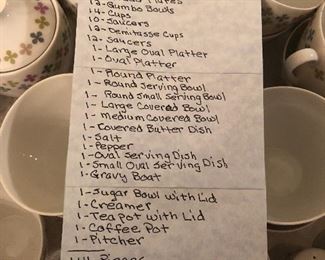 Plates
12-Gumbo Bowls
4-Cups
10-Saucers
12-Demitasse Cups
12-Saucers
1-Large Oval Platter
1-Oval Platter
1-Round Platter
1-Round Serving Bowl
1-Round Small Serving Bowl
1-Large Covered Bowl
1-Medium Covered Bowl
1-Covered Butter Dish
1-Salt
1-Pepper
1-Oval Serving Dish
1-Small Oval Serving Dish
1-Gravy Boat
1-Sugar Bowl with Lid
1-Creamer
1-Teapot with Lid
1-Coffee Pot
1-Pitcher